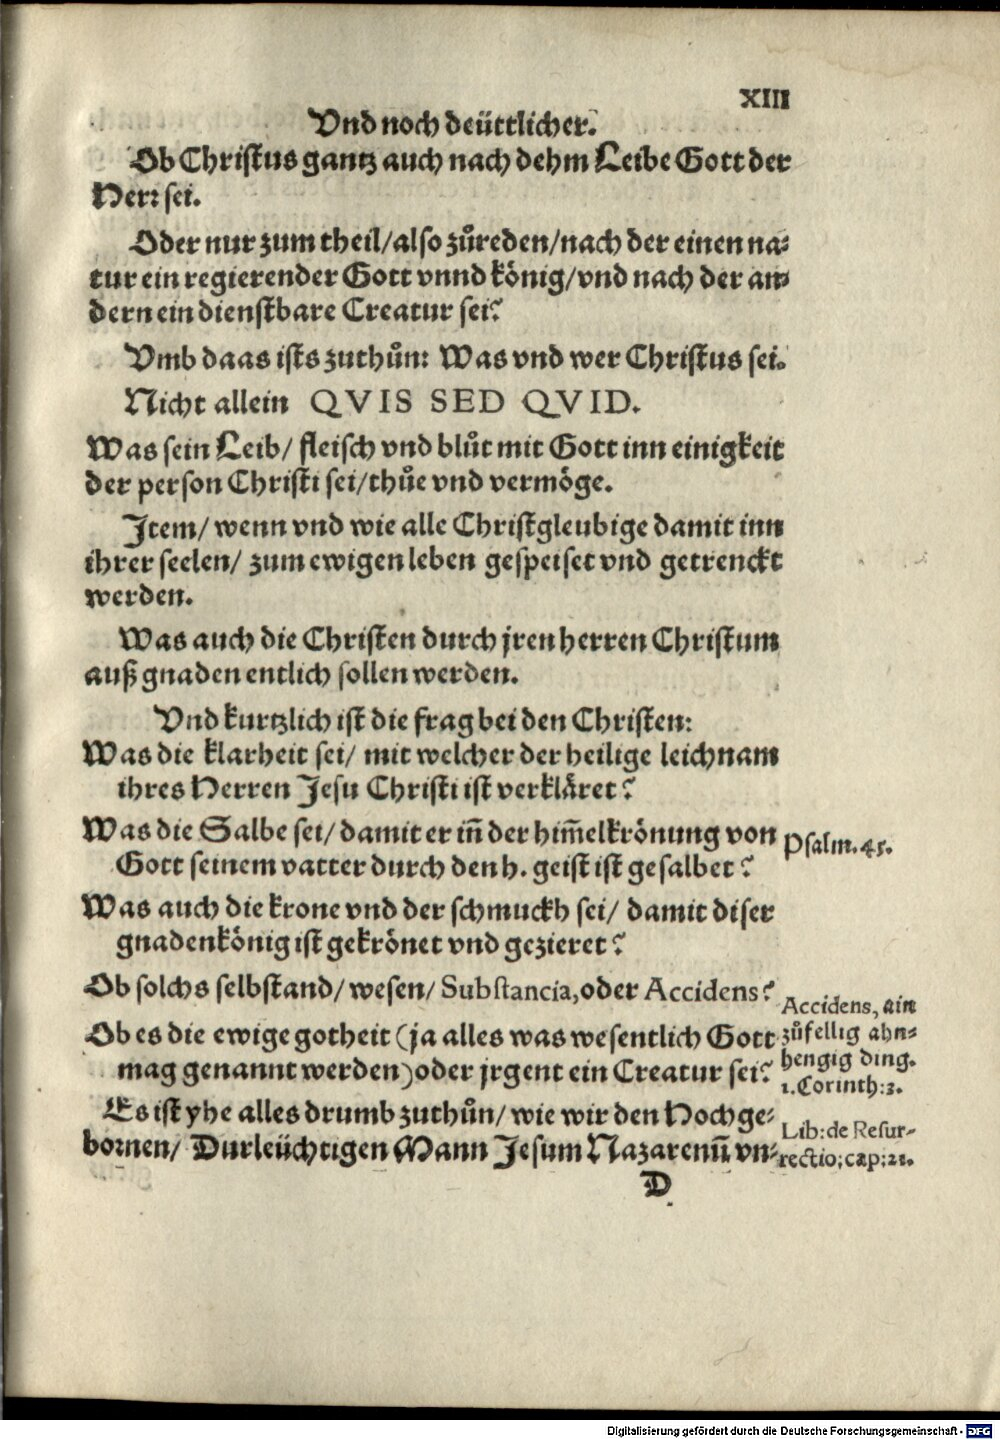 XIII
Vnd noch deüttlicher.
Ob Christus gantz auch nach dehm Leibe Gott der
Herr sei.
Oder nur zum theil/also zůreden/nach der einen na⸗
tur ein regierender Gott vnnd könig/vnd nach der an⸗
dern ein dienstbare Creatur sei?
Vmb daas ists zuthůn: Was vnd wer Christus sei.
Nicht allein QVIS SED QVID.
Was sein Leib/ fleisch vnd blůt mit Gott inn einigkeit
der person Christi sei/thůe vnd vermöge.
Item/ wenn vnd wie alle Christgleubige damit inn
ihrer seelen/ zum ewigen leben gespeiset vnd getrenckt
werden.
Was auch die Christen durch jren herren Christum
auß gnaden entlich sollen werden.
Vnd kurtzlich ist die frag bei den Christen:
Was die klarheit sei/ mit welcher der heilige leichnam
ihres Herren Jesu Christi ist verkläret?
Was die Salbe sei/ damit er in̄ der him̄elkrönung von
Psalm. 45.
Gott seinem vatter durch den h. geist ist gesalbet?
Was auch die krone vnd der schmuckh sei/ damit diser
gnadenkönig ist gekrönet vnd gezieret?
Ob solchs selbstand/ wesen/ Substancia, oder Accidens?
Accidens, ain
zůfellig ahn⸗
hengig ding.
1. Corinth: 2.
Ob es die ewige gotheit (ja alles was wesentlich Gott
mag genannt werden) oder jrgent ein Creatur sei?
Es ist yhe alles drumb zuthůn/ wie wir den Hochge⸗
bornen/ Durleüchtigen Mann Jesum Nazarenū vn⸗
Lib: de Resur-
rectio; cap; 21.
D
Digitalisierung gefördert durch die Deutsche Forschungsgemeinschaft - DFG